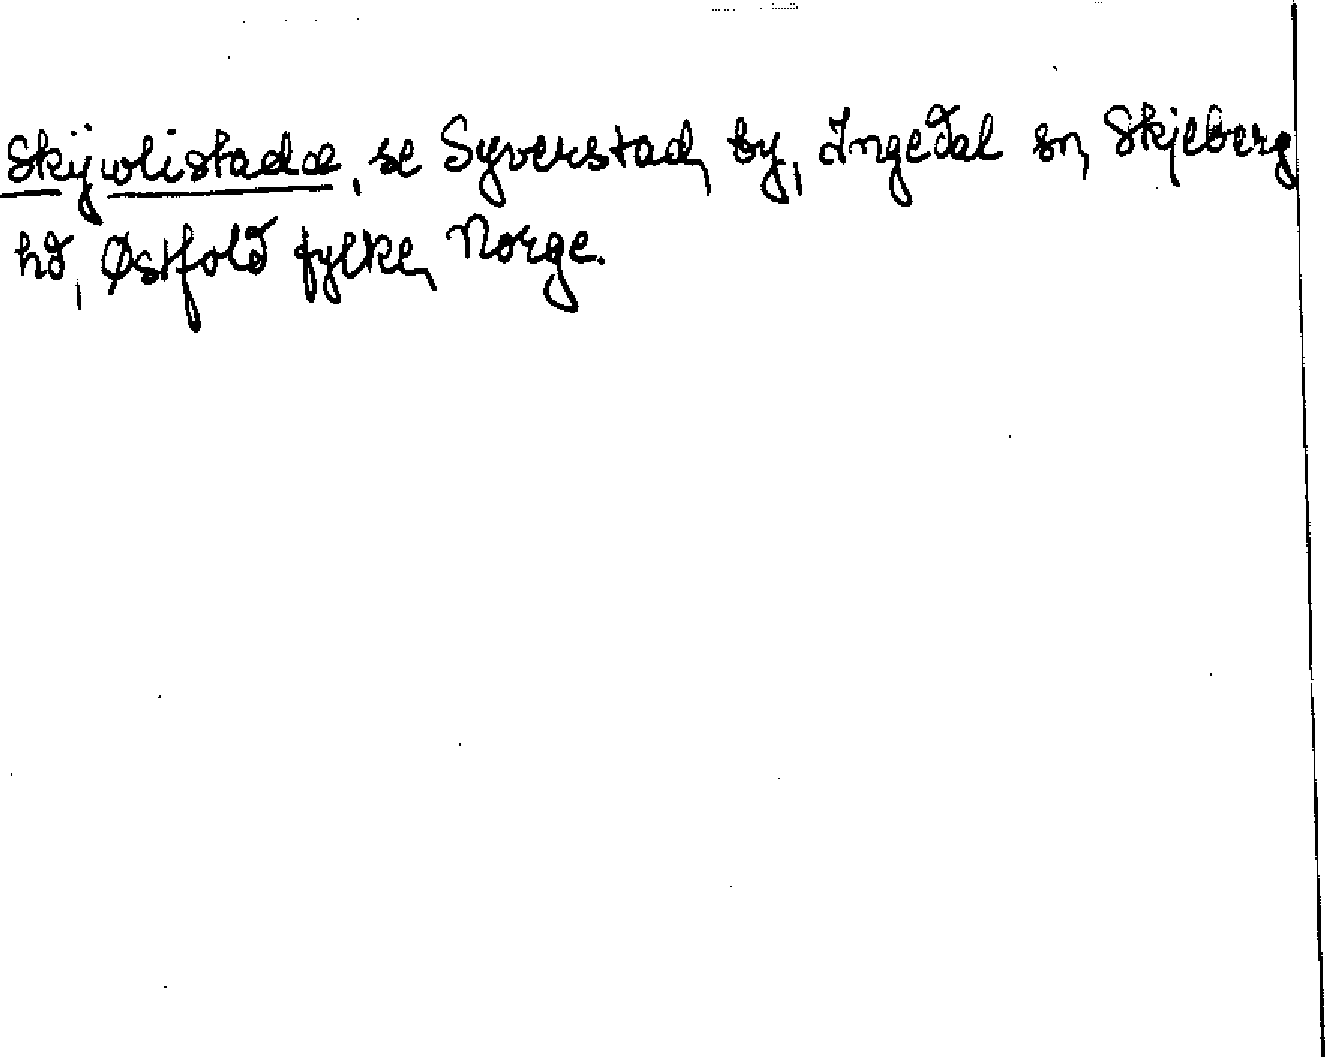 Skÿwlistadæ, se Syverstad, by, Ingedal sn, Skjeberg
hd, Østfold fylke, Norge.